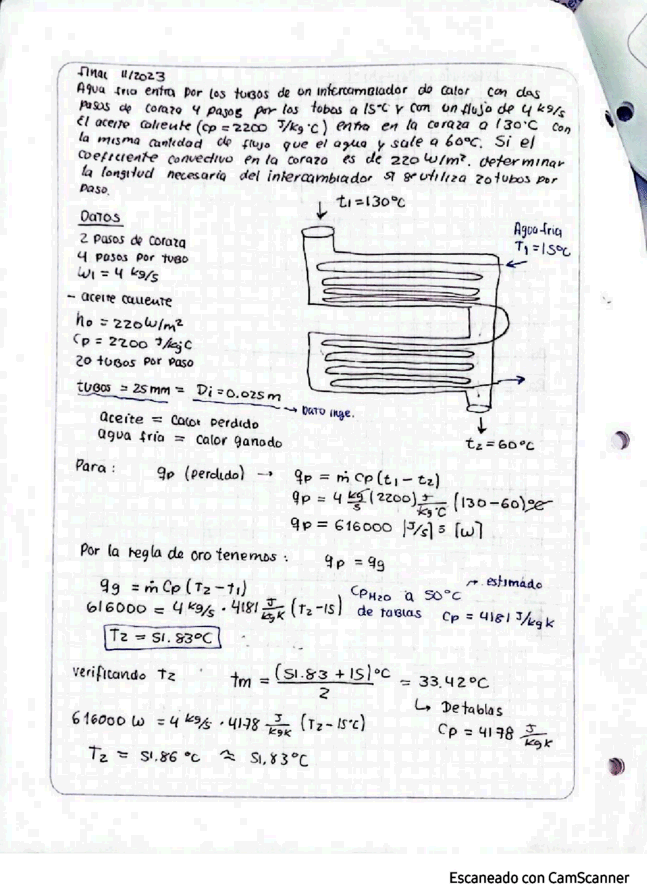 final 11/2023
Agua fria entra por los tubos de un intercambiador de calor con dos
pasos de coraza 4 pasos por los tobos a 15°C y con un flujo de 4 kg/s
El aceite caliente (cp = 2200 J/kg·°C) entra en la coraza a 130°C con
la misma cantidad de flujo que el agua y sale a 60°C. Si el
coeficiente convectivo en la coraza es de 220 W/m². determinar
la longitud necesaria del intercambiador si se utiliza 20 tubos por
paso.
Datos
2 pasos de coraza
4 pasos por tubo
ω1 = 4 kg/s
- aceite caliente
ho = 220 W/m²
Cp = 2200 J/kg°C
20 tubos por paso
tubos = 25mm = Di = 0.025m
→ Dato inge.
t1 = 130°C
Agua fria
T1 = 15°C
t2 = 60°C
aceite = calor perdido
agua fria = calor ganado
Para: qp (perdido) → qp = ṁ cp (t1 - t2)
qp = 4 kg/s (2200) J/kg°C (130-60)°C
qp = 616000 [J/s] = [W]
Por la regla de oro tenemos: qp = qg
qg = ṁ Cp (T2 - t1)
616000 = 4 kg/s · 4181 J/kgK (T2 - 15)
CpH2O a 50°C → estimado
de tablas Cp = 4181 J/kgK
T2 = 51.83°C
verificando T2 tm = (51.83 + 15)°C / 2 = 33.42°C
↳ De tablas
Cp = 4178 J/kgK
616000 W = 4 kg/s · 4178 J/kgK (T2 - 15°C)
T2 = 51.86 °C ≈ 51,83°C
Escaneado con CamScanner